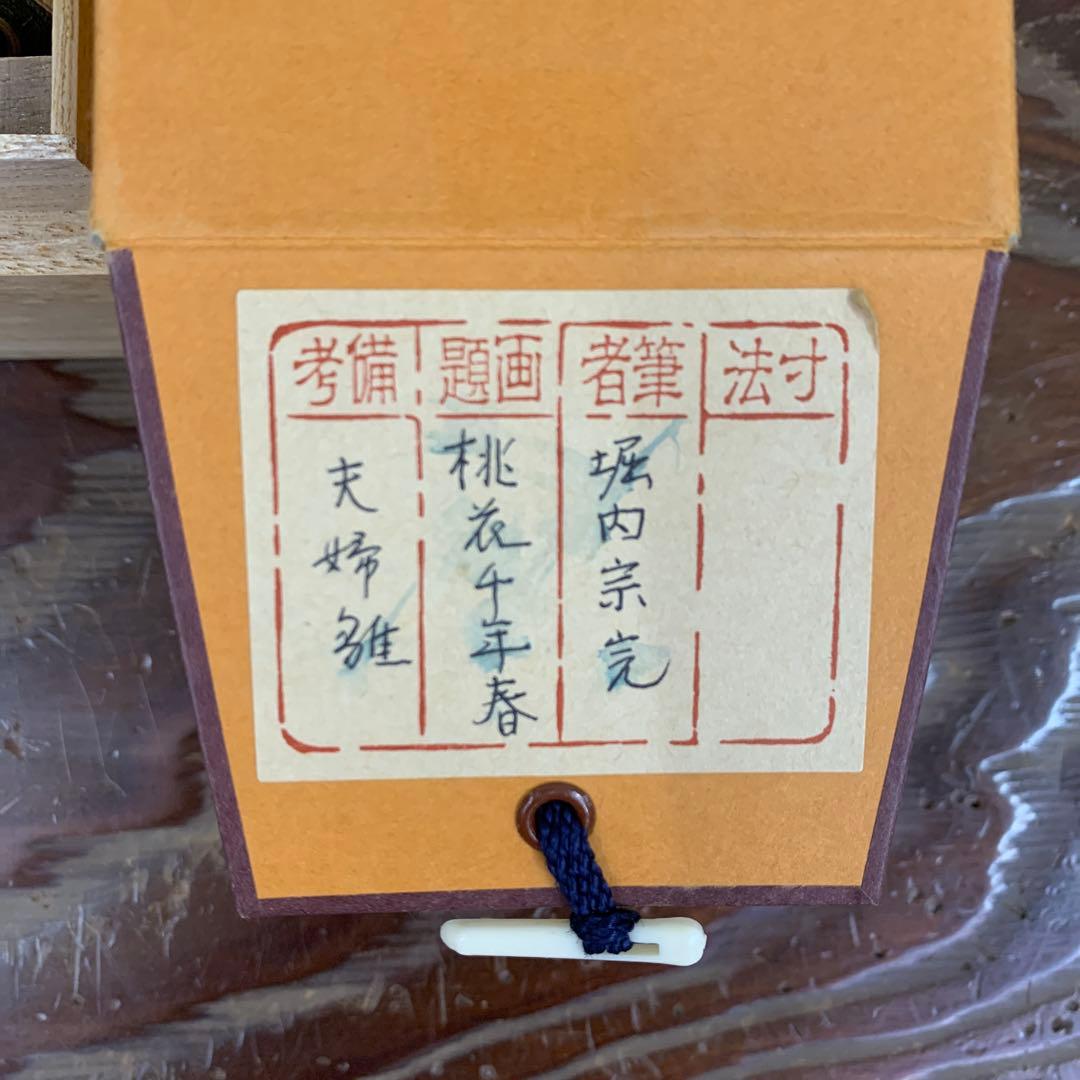 寸法
筆者
堀内宗完
画題
桃花千年春
備考
夫婦雛